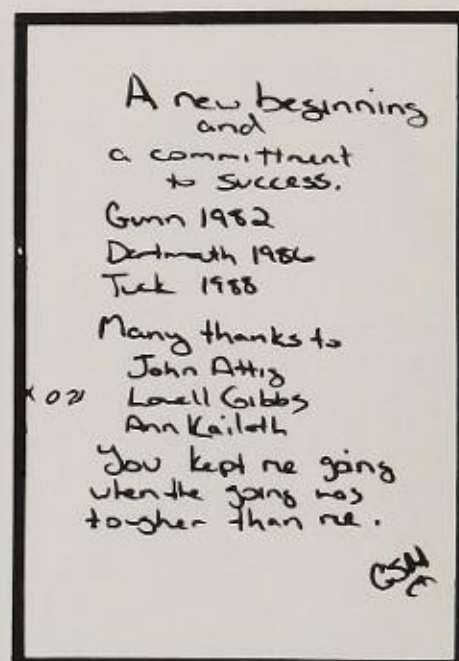 A new beginning
and
a committment
to success.
Gunn 1982
Dartmouth 1986
Tuck 1988
Many thanks to
John Attig
Lowell Gibbs
Ann Kailath
You kept me going
when the going was
tougher than me.